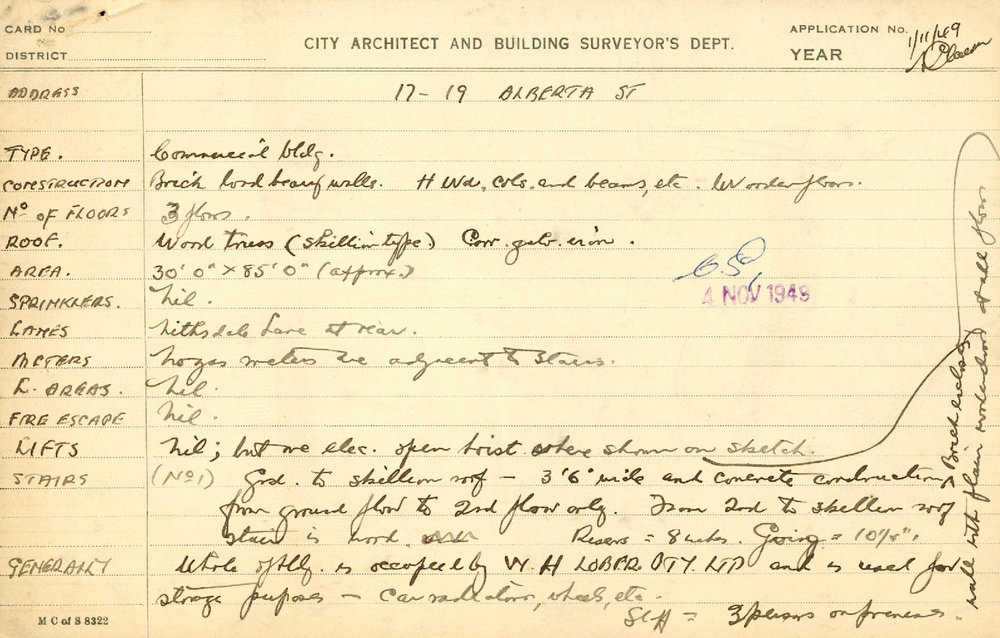 CARD No
DISTRICT
CITY ARCHITECT AND BUILDING SURVEYOR'S DEPT.
APPLICATION No.
YEAR
1/11/49
ADDRESS 17-19 ALBERTA ST
TYPE. Commercial bldg.
CONSTRUCTION Brick load bearg walls. H Wd. cols. and beams, etc. Wooden floors.
No OF FLOORS 3 floors.
ROOF. Wood truss (skillion type) Corr. galv. iron.
AREA. 30' 0" x 85' 0" (approx.)
4 NOV 1949
SPRINKLERS. Nil.
LANES Nithsdale Lane at rear.
METERS No gas meters are adjacent to stairs.
L. AREAS. Nil.
FIRE ESCAPE Nil.
LIFTS Nil; but one elec. open hoist where shown on sketch.
STAIRS (No1) Grd. to skillion roof - 3'6" wide and concrete construction
from ground floor to 2nd floor only. From 2nd to skillion roof
stair is wood. Risers = 8 inches. Going = 10¼".
GENERALLY Whole of bldg. is occupied by W. H LOBER PTY LTD and is used for
storage purposes - car radiators, wheels, etc.
= 3 persons on premises.
M C of S 8322
Brick enclosing
wall with plain wooden doors at all floors